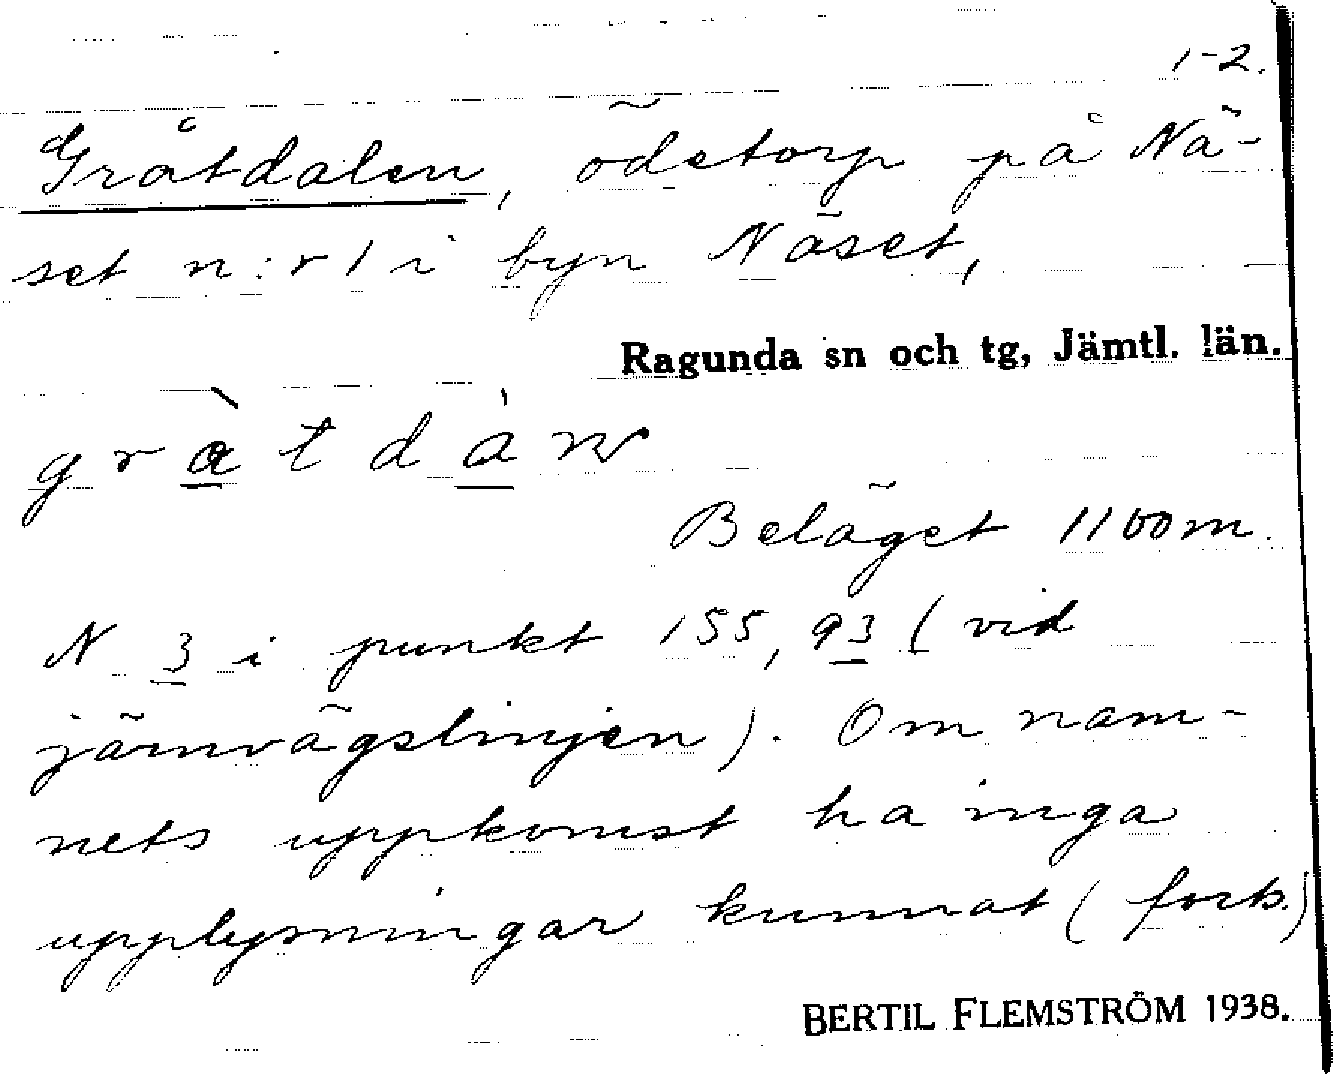 1-2.
Gråtdalen, ödetorp på Nä-
set n:r 1 i byn Näset,
Ragunda sn och tg, Jämtl. län.
Beläget 1100 m.
N 3 i punkt 155,93 (vid
järnvägslinjen). Om nam-
nets uppkomst ha inga
upplysningar kunnat (forts.)
BERTIL FLEMSTRÖM 1938.